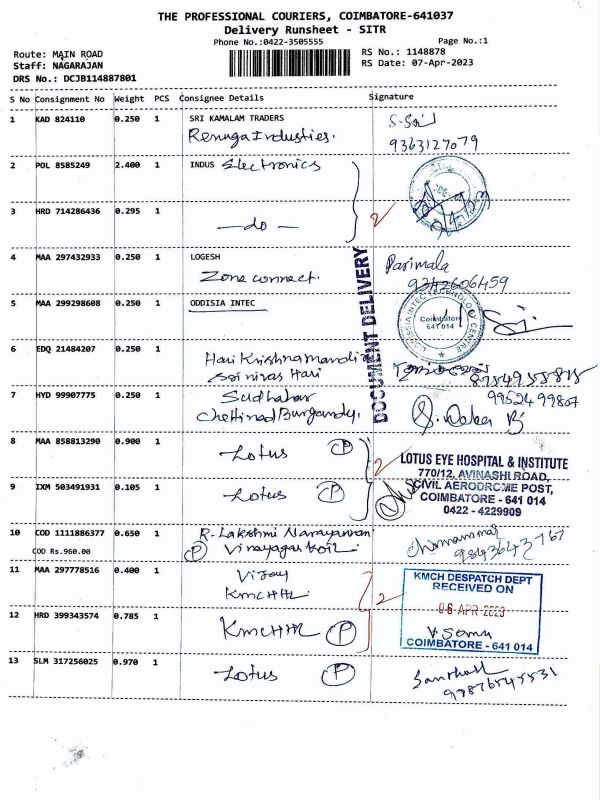 THE PROFESSIONAL COURIERS, COIMBATORE-641037
Delivery Runsheet - SITR
Phone No.:0422-3505555 Page No.:1
Route: MAIN ROAD RS No.: 1148878
Staff: NAGARAJAN RS Date: 07-Apr-2023
DRS No.: DCJB114887801
S No Consignment No Weight PCS Consignee Details Signature
1 KAD 824110 0.250 1 SRI KAMALAM TRADERS
Renuga Industies. 9363127079
2 POL 8585249 2.400 1 INDUS Electronics
3 HRD 714286436 0.295 1
—do— 2
4 MAA 297432933 0.250 1 LOGESH Parimala
Zone connect. 9342606459
5 MAA 299298608 0.250 1 ODDISIA INTEC
Coimbatore
641 014
DOCUMENT DELIVERY
6 EDQ 21484207 0.250 1
Hari Krishna mandir
Sri nivas Hari
7 HYD 99907775 0.250 1 Sudhakar 9952499807
Chettinad Burgandy.
8 MAA 858813290 0.900 1 Lotus P
2 LOTUS EYE HOSPITAL & INSTITUTE
770/12, AVINASHI ROAD,
9 IXM 503491931 0.105 1 Lotus P CIVIL AERODROME POST,
COIMBATORE - 641 014
0422 - 4229909
10 COD 1111886377 0.650 1 R. Lakshmi Narayanan
COD Rs.960.00 P Vinayagar koil
11 MAA 297778516 0.400 1 Vijay
KMCHHL 2 KMCH DESPATCH DEPT
RECEIVED ON
06 APR 2023
12 HRD 399343574 0.785 1 KMCHHL P
COIMBATORE - 641 014
13 SLM 317256025 0.970 1 Lotus P